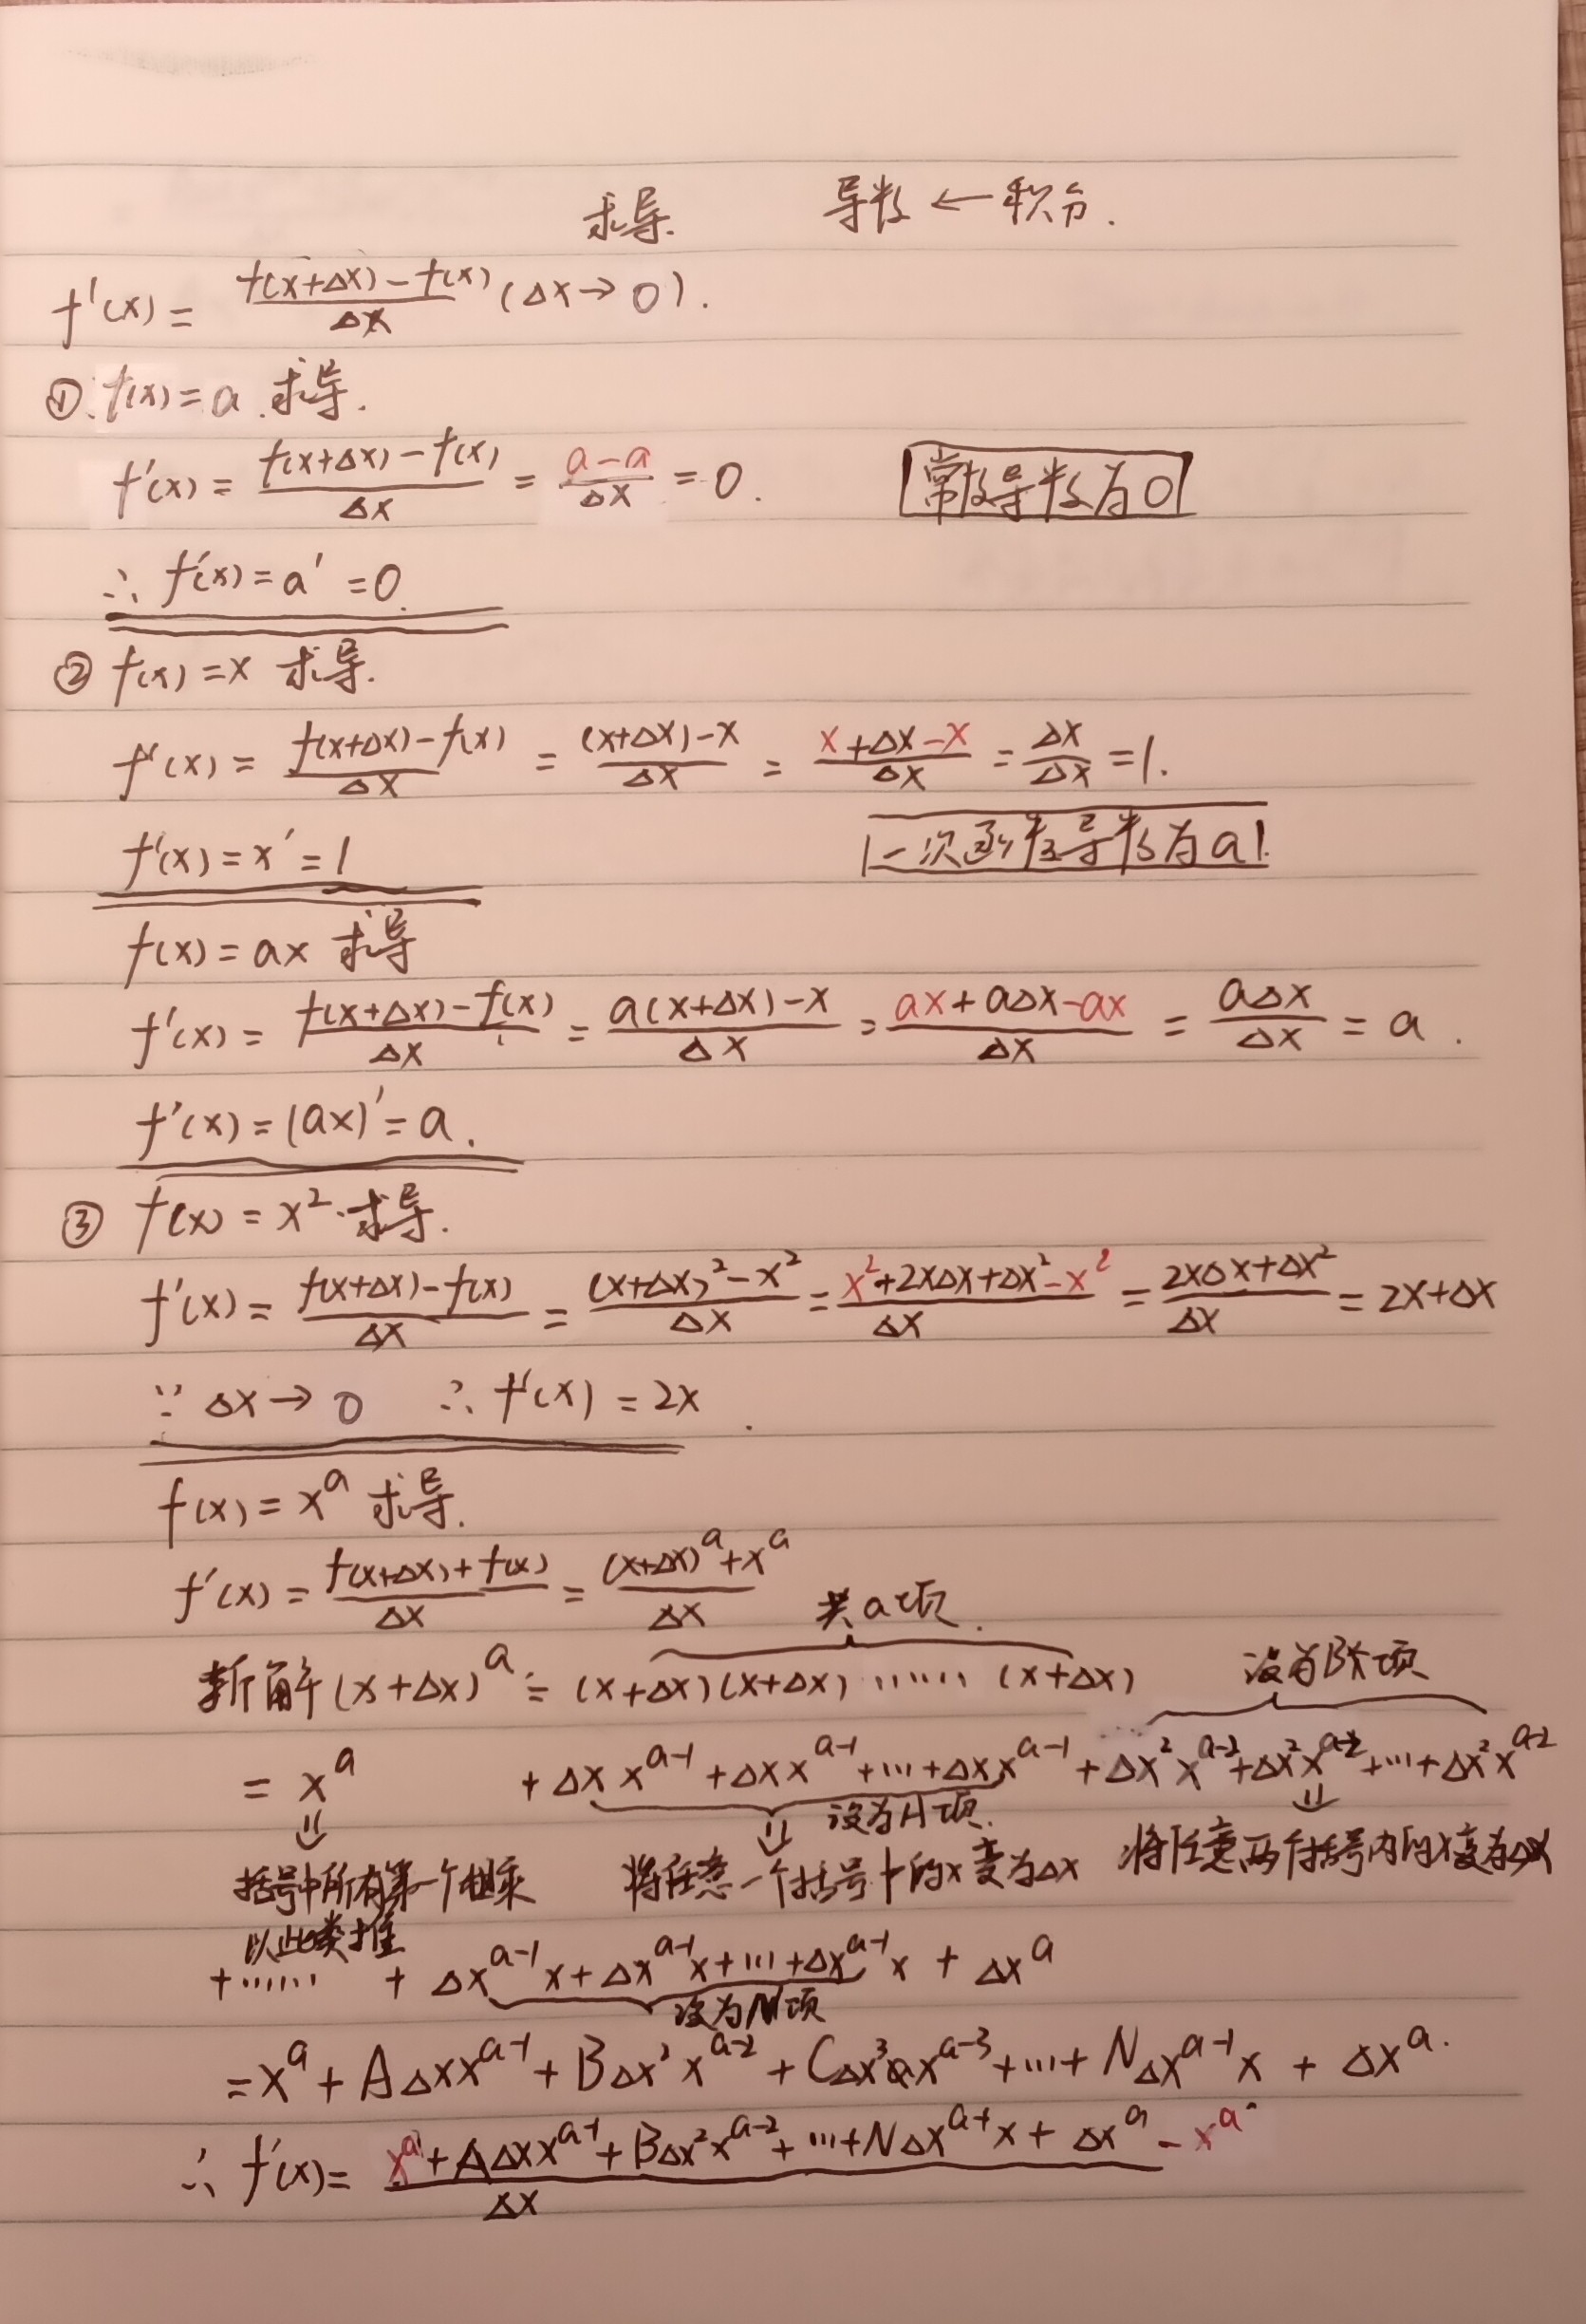 求导. 导数 ← 积分.
f'(x) = \frac{f(x+Δx)-f(x)}{Δx} (Δx→0).
①. f(x)=a. 求导.
f'(x) = \frac{f(x+Δx)-f(x)}{Δx} = \frac{a-a}{Δx} = 0. 常数导数为0
∴ f'(x)=a'=0.
② f(x)=x 求导.
f'(x) = \frac{f(x+Δx)-f(x)}{Δx} = \frac{(x+Δx)-x}{Δx} = \frac{x+Δx-x}{Δx} = \frac{Δx}{Δx} = 1.
f'(x)=x'=1 一次函数导数为a
f(x)=ax 求导
f'(x) = \frac{f(x+Δx)-f(x)}{Δx} = \frac{a(x+Δx)-x}{Δx} = \frac{ax+aΔx-ax}{Δx} = \frac{aΔx}{Δx} = a.
f'(x)=(ax)'=a.
③ f(x)=x^2. 求导.
f'(x) = \frac{f(x+Δx)-f(x)}{Δx} = \frac{(x+Δx)^2-x^2}{Δx} = \frac{x^2+2xΔx+Δx^2-x^2}{Δx} = \frac{2xΔx+Δx^2}{Δx} = 2x+Δx
∵ Δx→0 ∴ f'(x)=2x.
f(x)=x^a 求导.
f'(x) = \frac{f(x+Δx)+f(x)}{Δx} = \frac{(x+Δx)^a+x^a}{Δx}
共a项.
拆解(x+Δx)^a = (x+Δx)(x+Δx)……(x+Δx) 设为B项
= x^a + Δx x^{a-1} + Δx x^{a-1} + … + Δx x^{a-1} + Δx^2 x^{a-2} + Δx^2 x^{a-2} + … + Δx^2 x^{a-2}
设为A项.
括号中所有第一个相乘 将任意一个括号中的x变为Δx 将任意两个括号内的x变为Δx
以此类推
+ …… + Δx^{a-1} x + Δx^{a-1} x + … + Δx^{a-1} x + Δx^a
设为N项
= x^a + AΔx x^{a-1} + BΔx^2 x^{a-2} + CΔx^3 x^{a-3} + … + NΔx^{a-1} x + Δx^a.
∴ f'(x) = \frac{x^a + AΔx x^{a-1} + BΔx^2 x^{a-2} + … + NΔx^{a-1} x + Δx^a - x^a}{Δx}